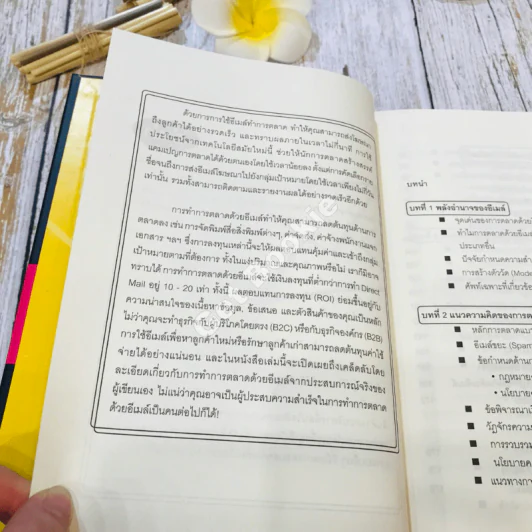 ด้วยการการใช้อีเมล์ทำการตลาด ทำให้คุณสามารถส่งโฆษณา
ถึงลูกค้าได้อย่างรวดเร็ว และทราบผลภายในเวลาไม่กี่นาที การใช้
ประโยชน์จากเทคโนโลยีสมัยใหม่นี้ ช่วยให้นักการตลาดสร้างสรรค์
แคมเปญการตลาดได้ด้วยตนเองโดยใช้เวลาน้อยลง ตั้งแต่การคัดเลือกราย
ชื่อจนถึงการส่งอีเมล์โฆษณาไปยังกลุ่มเป้าหมายโดยใช้เวลาเพียงไม่กี่วัน
เท่านั้น รวมทั้งสามารถติดตามและรายงานผลได้อย่างรวดเร็วอีกด้วย
การทำการตลาดด้วยอีเมล์ทำให้คุณสามารถลดต้นทุนด้านการ
ตลาดลง เช่น การจัดพิมพ์สื่อสิ่งพิมพ์ต่างๆ, ค่าจัดส่ง, ค่าจ้างพนักงานแจก
เอกสาร ฯลฯ ซึ่งการลงทุนเหล่านี้จะให้ผลตอบแทนคุ้มค่าและเข้าถึงกลุ่ม
เป้าหมายตามที่ต้องการ ทั้งในแง่ปริมาณและคุณภาพหรือไม่ เราก็มิอาจ
ทราบได้ การทำการตลาดด้วยอีเมล์จะใช้เงินลงทุนที่ต่ำกว่าการทำ Direct
Mail อยู่ 10 - 20 เท่า ทั้งนี้ ผลตอบแทนการลงทุน (ROI) ย่อมขึ้นอยู่กับ
ความน่าสนใจของเนื้อหาข้อมูล, ข้อเสนอ และตัวสินค้าของคุณเป็นหลัก
ไม่ว่าคุณจะทำธุรกิจกับผู้บริโภคโดยตรง (B2C) หรือกับธุรกิจองค์กร (B2B)
การใช้อีเมล์เพื่อหาลูกค้าใหม่หรือรักษาลูกค้าเก่าสามารถลดต้นทุนค่าใช้
จ่ายได้อย่างแน่นอน และในหนังสือเล่มนี้จะเปิดเผยถึงเคล็ดลับโดย
ละเอียดเกี่ยวกับการทำการตลาดด้วยอีเมล์จากประสบการณ์จริงของ
ผู้เขียนเอง ไม่แน่ว่าคุณอาจเป็นผู้ประสบความสำเร็จในการทำการตลาด
ด้วยอีเมล์เป็นคนต่อไปก็ได้!
บทนำ
บทที่ 1 พลังอำนาจของอีเมล์
จุดเด่นของการตลาดด้วย
ทำไมการตลาดด้วยอีเมล์
ประเภทอื่น
ปัจจัยกำหนดความสำ
การสร้างตัววัด (Mode
ศัพท์เฉพาะที่เกี่ยวข้อ
บทที่ 2 แนวความคิดของการต
หลักการตลาดแบ
อีเมล์ขยะ (Spam
ข้อกำหนดด้านก
กฎหมาย
นโยบาย
ข้อพิจารณาเ
วัฏจักรความ
การรวบรว
นโยบายค
แนวทางก